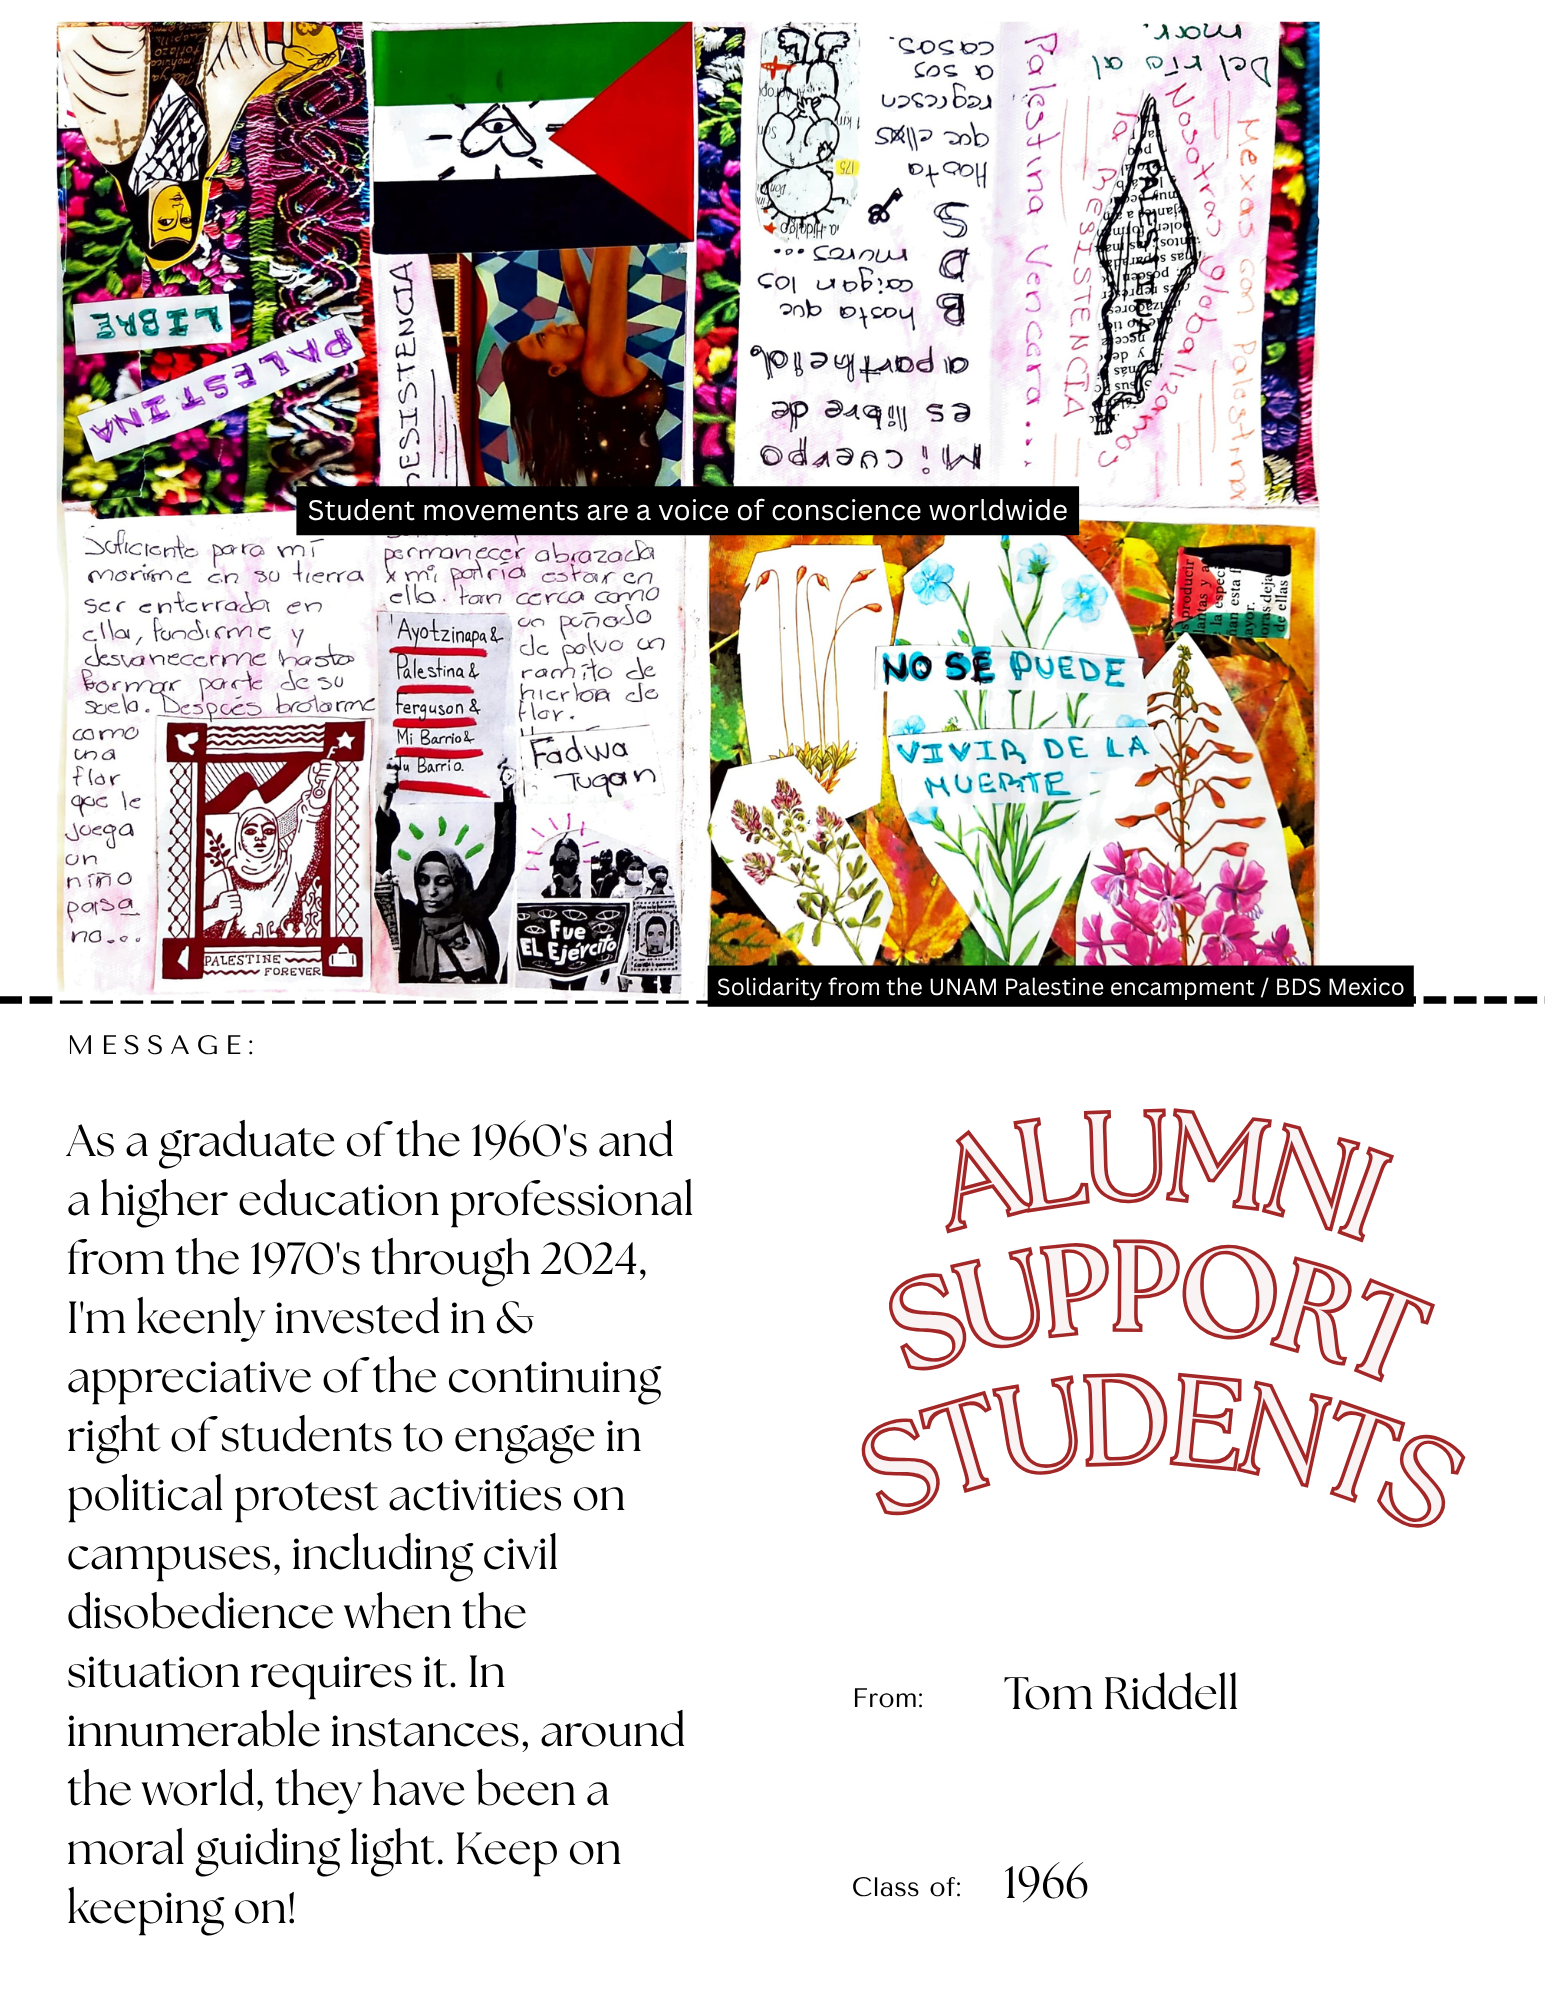 LIBRE
PALESTINA
RESISTENCIA
Mi cuerpo
es libre de
apartheid
hasta que
caigan los
muros...
B
D
S
Hasta
que ellxs
regresen
a sus
casas.
175
Palestina Vencera...
la RESISTENCIA
Nosotras globalizamos
PALESTINA
Mexas con Palestina
Del río al
mar.
Student movements are a voice of conscience worldwide
Suficiente para mí
morirme en su tierra
ser enterrada en
ella, fundirme y
desvanecerme hasta
formar parte de su
suelo. Después brotarme
como
una
flor
que le
juega
un
niño
paisa
no...
PALESTINE
FOREVER
permanecer abrazada
x mi patria estar en
ella. tan cerca como
un puñado
de polvo un
ramito de
hierba de
flor.
Ayotzinapa &
Palestina &
Ferguson &
Mi Barrio &
Tu Barrio.
Fadwa
Tuqan
Fue
EL Ejército
NO SE PUEDE
VIVIR DE LA
MUERTE
Solidarity from the UNAM Palestine encampment / BDS Mexico
MESSAGE:
As a graduate of the 1960's and
a higher education professional
from the 1970's through 2024,
I'm keenly invested in &
appreciative of the continuing
right of students to engage in
political protest activities on
campuses, including civil
disobedience when the
situation requires it. In
innumerable instances, around
the world, they have been a
moral guiding light. Keep on
keeping on!
ALUMNI
SUPPORT
STUDENTS
From: Tom Riddell
Class of: 1966